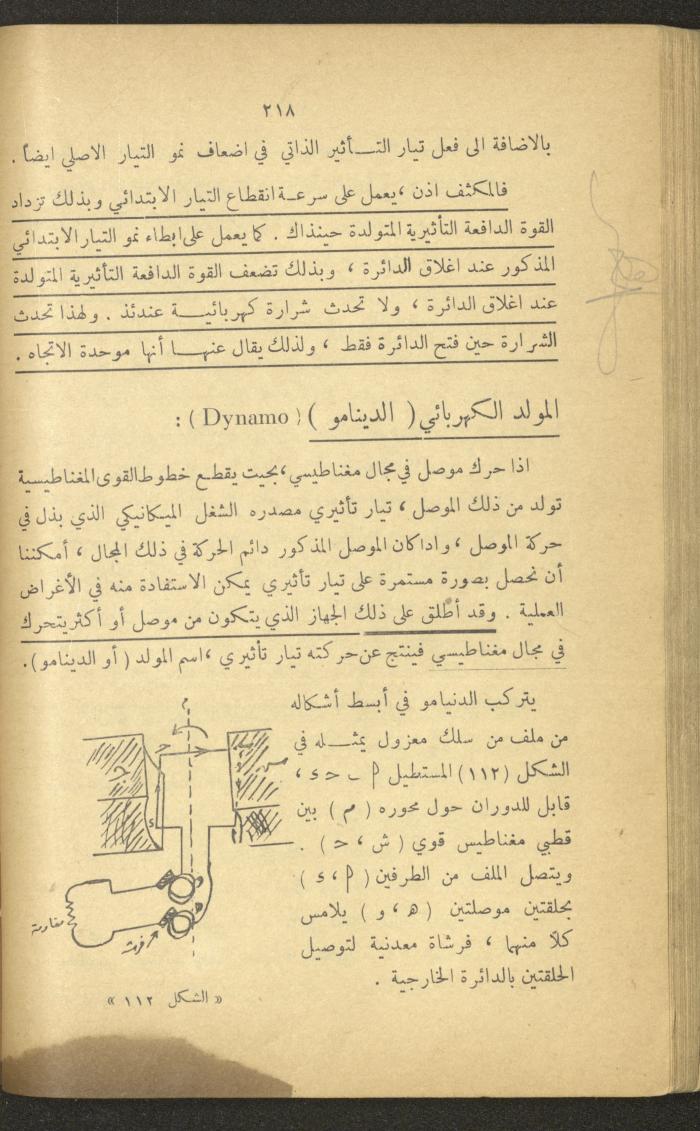 ٢١٨
بالاضافة الى فعل تيار التـــأثير الذاتي في اضعاف نمو التيار الاصلي ايضاً .
فالمكثف اذن ، يعمل على سرعـة انقطاع التيار الابتدائي وبذلك تزداد
القوة الدافعة التأثيرية المتولدة حينذاك . كما يعمل على ابطاء نمو التيار الابتدائي
المذكور عند اغلاق الدائرة ، وبذلك تضعف القوة الدافعة التأثيرية المتولدة
عند اغلاق الدائرة ، ولا تحدث شرارة كهربائيـــة عندئذ . ولهذا تحدث
الشرارة حين فتح الدائرة فقط ، ولذلك يقال عنهـــا أنها موحدة الاتجاه .
المولد الكهربائي ( الدينامو ) ( Dynamo ) :
اذا حرك موصل في مجال مغناطيسي ، بحيت يقطـع خطوط القوى المغناطيسية
تولد من ذلك الموصل ، تيار تأثيري مصدره الشغل الميكانيكي الذي بذل في
حركة الموصل ، واداكان الموصل المذكور دائم الحركة في ذلك المجال ، أمكننا
أن نحصل بصورة مستمرة على تيار تأثيري يمكن الاستفادة منه في الأغراض
العملية . وقد أطلق على ذلك الجهاز الذي يتكون من موصل أو أكثر يتحرك
في مجال مغناطيسي فينتج عن حركته تيار تأثيري ، اسم المولد ( أو الدينامو ) .
يتركب الدنيامو في أبسط أشكاله
من ملف من سلك معزول يمثـــله في
الشكل (١١٢) المستطيل م ب ح د ،
قابل للدوران حول محوره ( م ) بين
قطبي مغناطيس قوي ( ش ، ح ) .
ويتصل الملف من الطرفين ( م ، د )
بحلقتين موصلتين ( ه ، و ) يلامس
كلاً منهما ، فرشاة معدنية لتوصيل
الحلقتين بالدائرة الخارجية .
م
ح
ب
ش
ج
د
و
ه
مقاومة
فرشة
« الشكل ١١٢ »